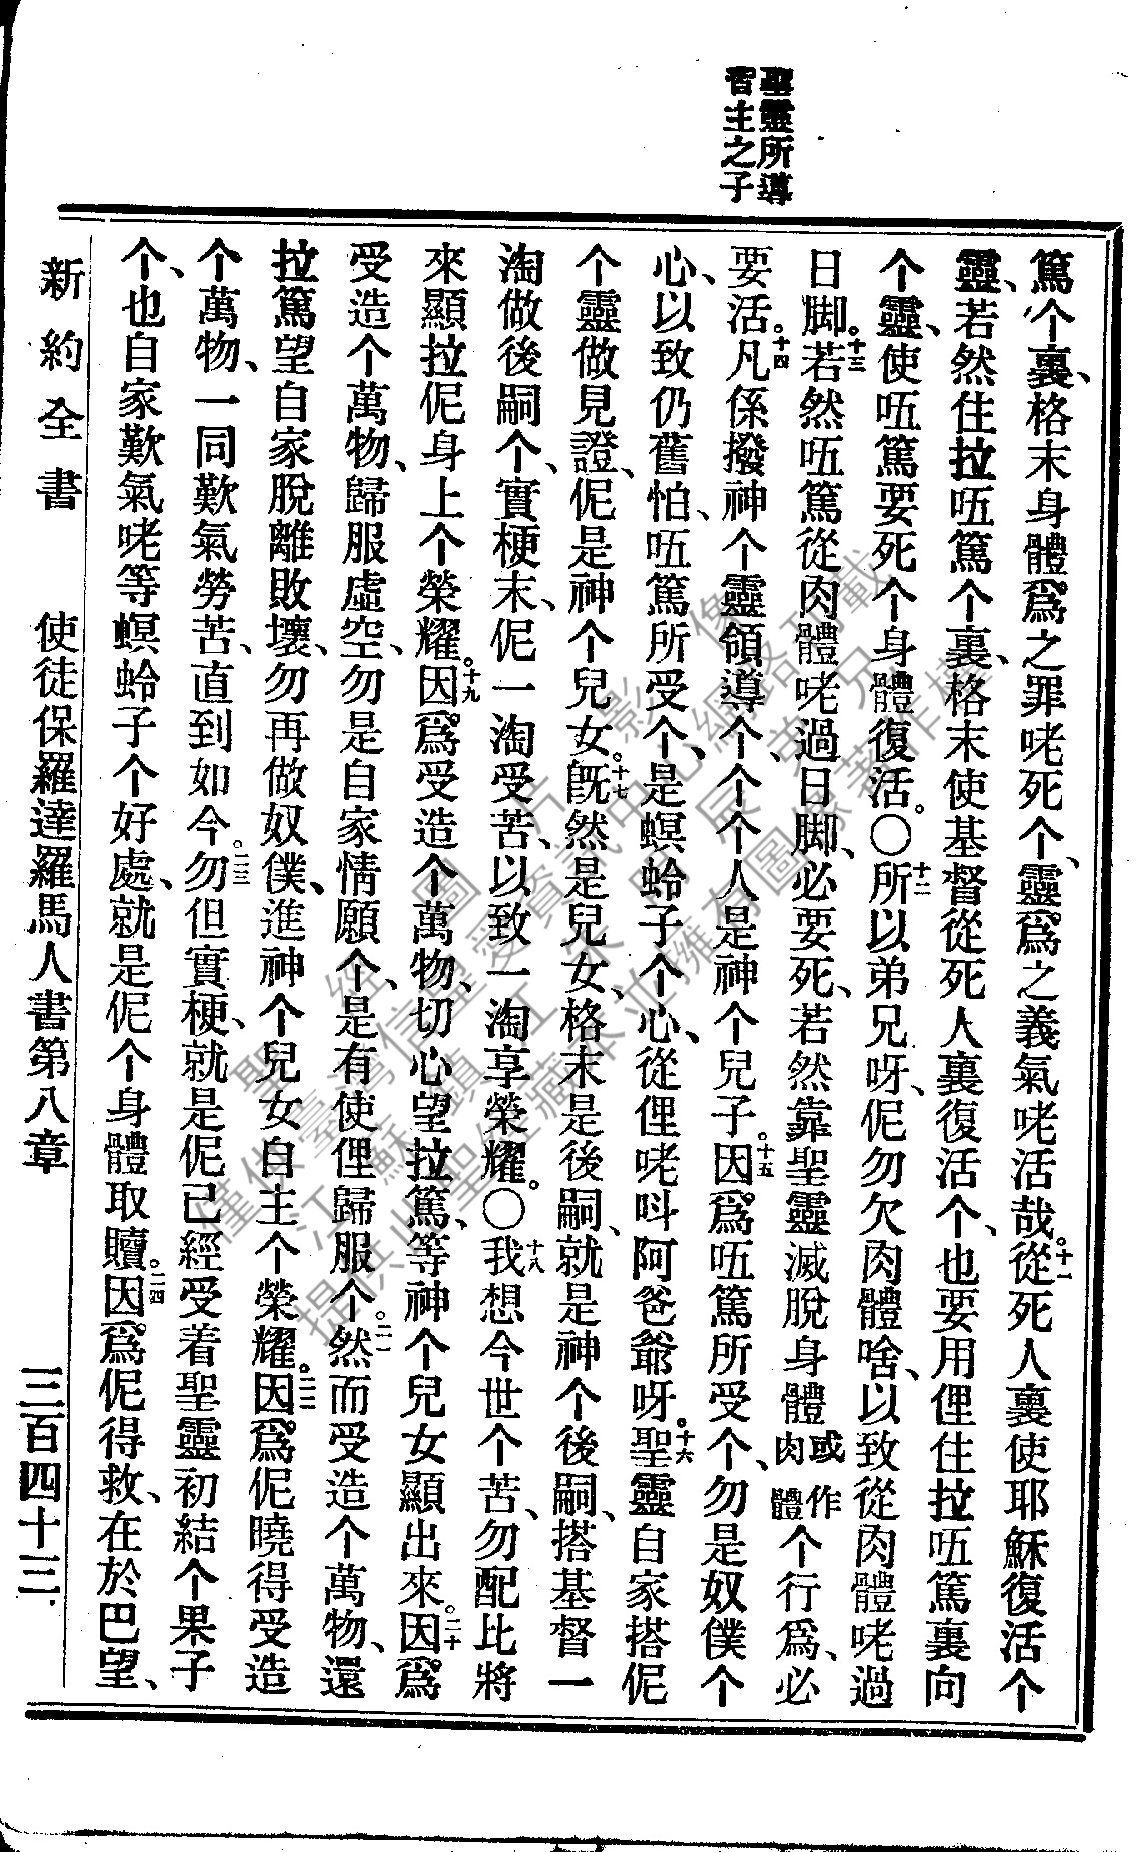 聖靈所導
皆主之子
篤个裏、格末身體爲之罪咾死个、靈爲之義氣咾活哉。十一從死人裏使耶穌復活个
靈、若然住拉㕶篤个裏、格末使基督從死人裏復活个、也要用俚住拉㕶篤裏向
个靈、使㕶篤要死个身體復活。〇十二所以弟兄呀、伲勿欠肉體啥、以致從肉體咾過
日脚。十三若然㕶篤從肉體咾過日脚、必要死、若然靠聖靈滅脫身體或作肉體个行爲、必
要活。十四凡係撥神个靈領導个、个个人是神个兒子。十五因爲㕶篤所受个、勿是奴僕个
心、以致仍舊怕、㕶篤所受个、是螟蛉子个心、從俚咾呌阿爸爺呀。十六聖靈自家搭伲
个靈做見證、伲是神个兒女。十七旣然是兒女、格末是後嗣、就是神个後嗣、搭基督一
淘做後嗣个、實梗末、伲一淘受苦、以致一淘享榮耀。〇十八我想今世个苦、勿配比將
來顯拉伲身上个榮耀。十九因爲受造个萬物、切心望拉篤、等神个兒女顯出來。二十因爲
受造个萬物、歸服虛空、勿是自家情願个、是有使俚歸服个。二一然而受造个萬物、還
拉篤望自家脫離敗壞、勿再做奴僕、進神个兒女自主个榮耀。二二因爲伲曉得受造
个萬物、一同歎氣勞苦、直到如今。二三勿但實梗、就是伲已經受着聖靈初結个果子
个、也自家歎氣咾等螟蛉子个好處、就是伲个身體取贖。二四因爲伲得救、在於巴望、
新約全書 使徒保羅達羅馬人書第八章 三百四十三
聖經圖片影像
僅供臺灣信望愛資訊中心網路刊載
江蘇鎮江
提供此聖經藏本並擁有圖像著作權